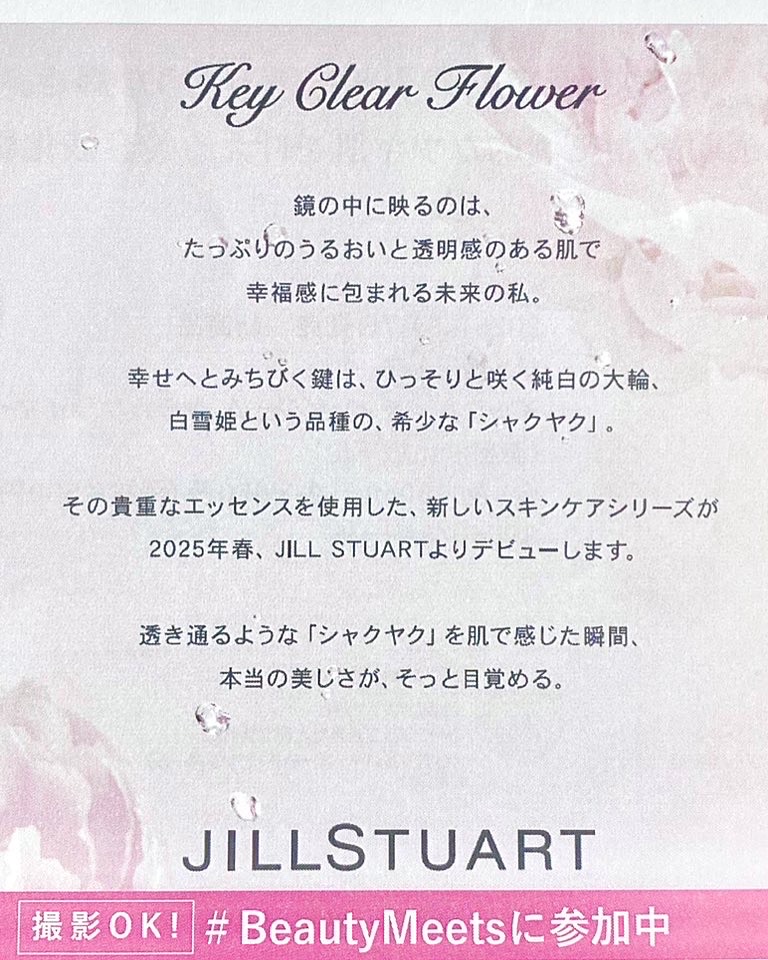 Key Clear Flower
鏡の中に映るのは、
たっぷりのうるおいと透明感のある肌で
幸福感に包まれる未来の私。
幸せへとみちびく鍵は、ひっそりと咲く純白の大輪、
白雪姫という品種の、希少な「シャクヤク」。
その貴重なエッセンスを使用した、新しいスキンケアシリーズが
2025年春、JILL STUARTよりデビューします。
透き通るような「シャクヤク」を肌で感じた瞬間、
本当の美しさが、そっと目覚める。
JILLSTUART
撮影OK! #BeautyMeetsに参加中